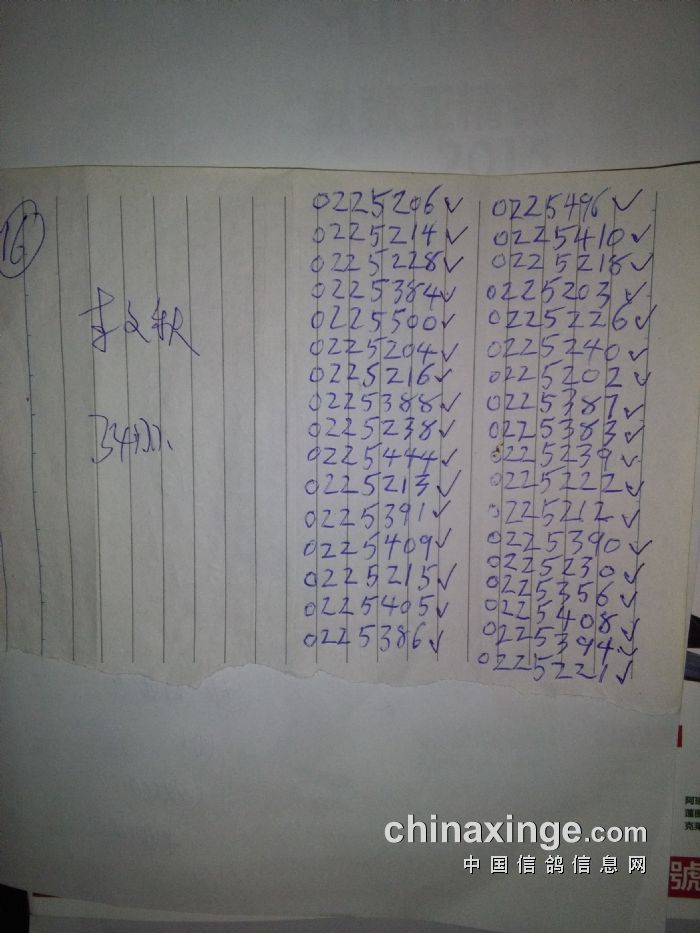 16
李文铁
34羽
0225206✓
0225214✓
0225228✓
0225384✓
0225500✓
0225204✓
0225216✓
0225388✓
0225238✓
0225444✓
0225213✓
0225391✓
0225409✓
0225215✓
0225405✓
0225386✓
0225496✓
0225410✓
0225218✓
0225203✓
0225226✓
0225240✓
0225202✓
0225387✓
0225383✓
0225239✓
0225222✓
0225212✓
0225390✓
0225230✓
0225356✓
0225408✓
0225394✓
0225221✓
chinaxinge.com
中国信鸽信息网
號